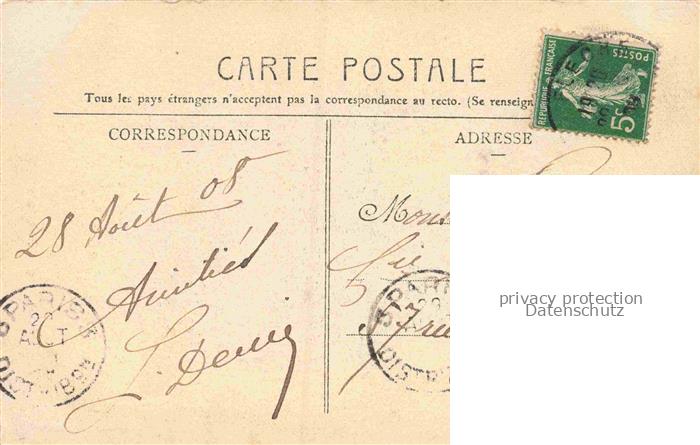 CARTE POSTALE
Tous les pays étrangers n'acceptent pas la correspondance au recto. (Se renseign
CORRESPONDANCE
ADRESSE
REPUBLIQUE FRANÇAISE
POSTES
5
28 Août 08
Amitiés
Mous
PARIS
DISTRIB
PARI
DISTR
privacy protection
Datenschutz